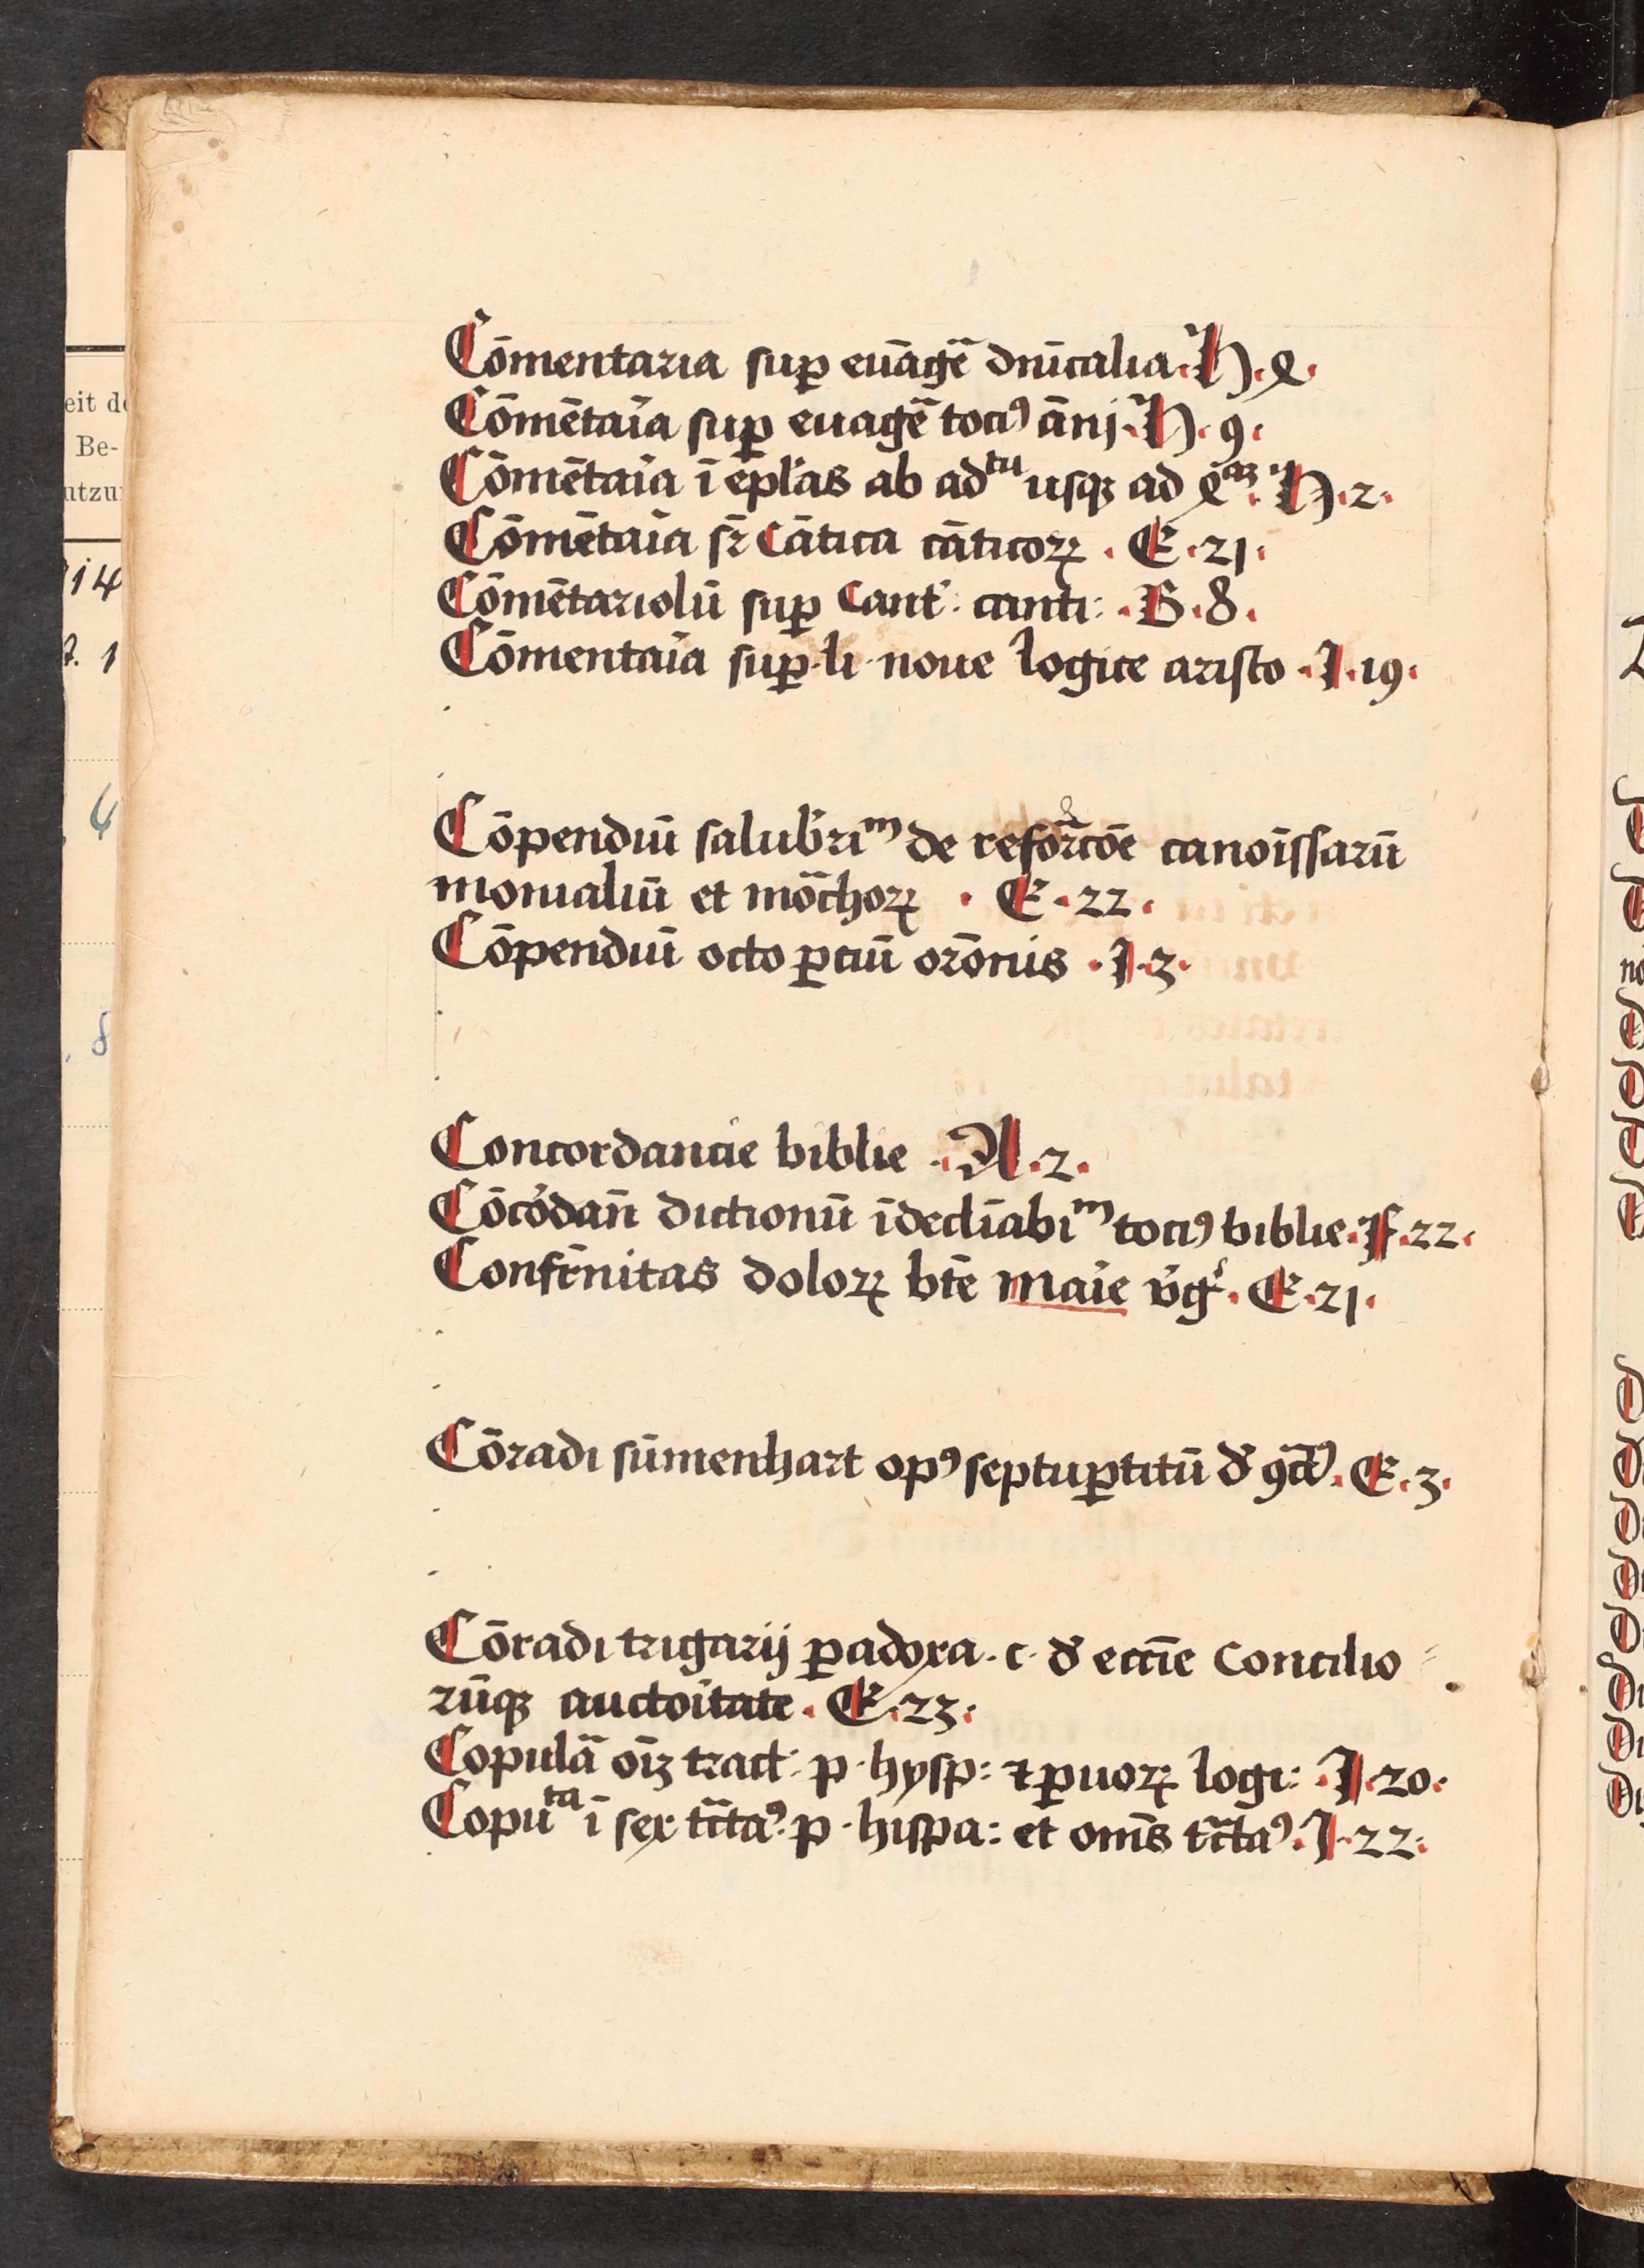 Cōmentaria suꝑ euāgē dnīcalia. H. ꝯ.
Cōmētaīa suꝑ euagē tociꝰ ānj. H. 9.
Cōmētaīa ī ep̄las ab adᵗᵘ usqꝫ ad H. 2.
Cōmētaīa sr̄ Cātica cāticoꝝ. E. 21.
Cōmētariolū suꝑ Cant: canti: . B. 8.
Cōmentaīa suꝑ. li. noue logice aristo. I. 19.
Cōpendiū salubriᵐ de refor̄cōe canoīssarū
monialiū et mōchoꝝ . E. 22.
Cōpendiū octo ꝑciū orōnis . I. 3.
Concordancie biblie . A. 2.
Cōcordan̄ dictionū īdecliabiᵐ tociꝰ biblie. F. 22.
Confr̄nitas doloꝝ btē maīe v̄gⁱ. E. 21.
Cōradi sūmenhart opꝰ septuꝑtitū đ ꝯctꝰ. E. 3.
Cōradi trigarij ꝑadoxa. c. đ eccīe Concilio
rūqꝫ auctoītate. E. 23.
Copulā oīꝫ tract: p. hysp: ⁊ ꝑuoꝝ logi: . I. 20.
Copuᵗᵃ ī sex tc̄taꝰ. p. hispa: et om̄s tc̄taꝰ. I. 22.
eit de
Be-
utzu
14
1
8